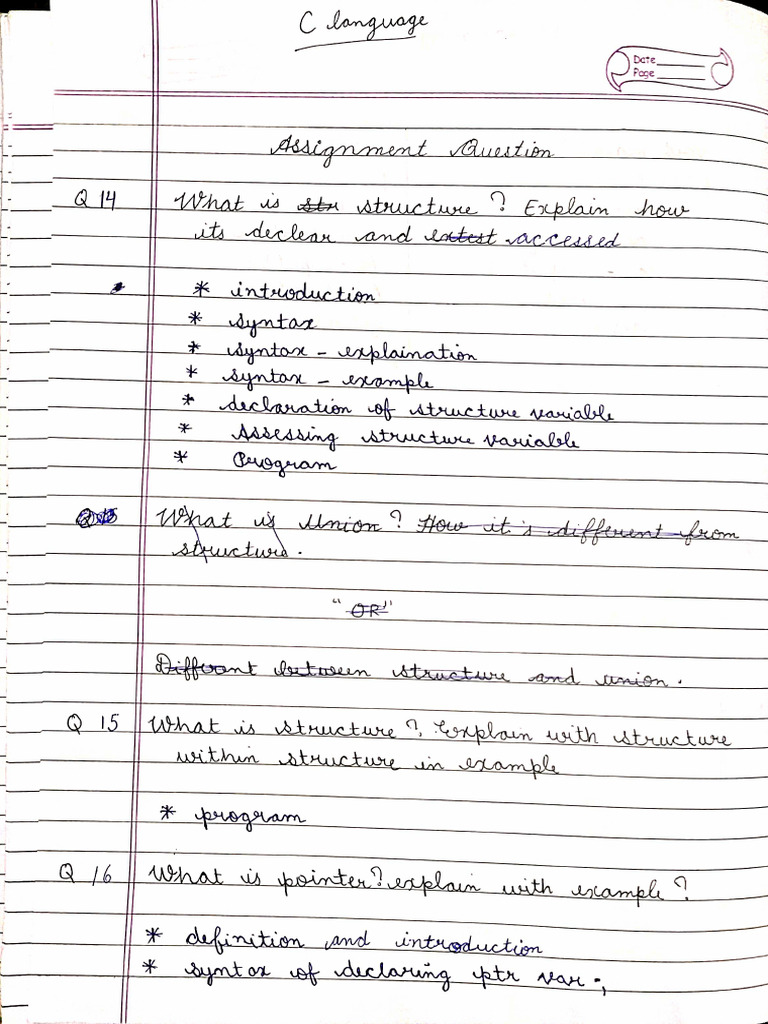 C language
Date
Page
Assignment Question
Q 14 What is str structure ? Explain how
its declear and extest accessed
* introduction
* syntax
* syntax - explaination
* syntax - example
* declaration of structure variable
* Assessing structure variable
* Program
Q 15 What is Union ? How it is different from
structure.
"OR"
Different between structure and union.
Q 15 What is structure ? Explain with structure
within structure in example
* program
Q 16 What is pointer? explain with example ?
* definition and introduction
* syntax of declaring ptr var ;